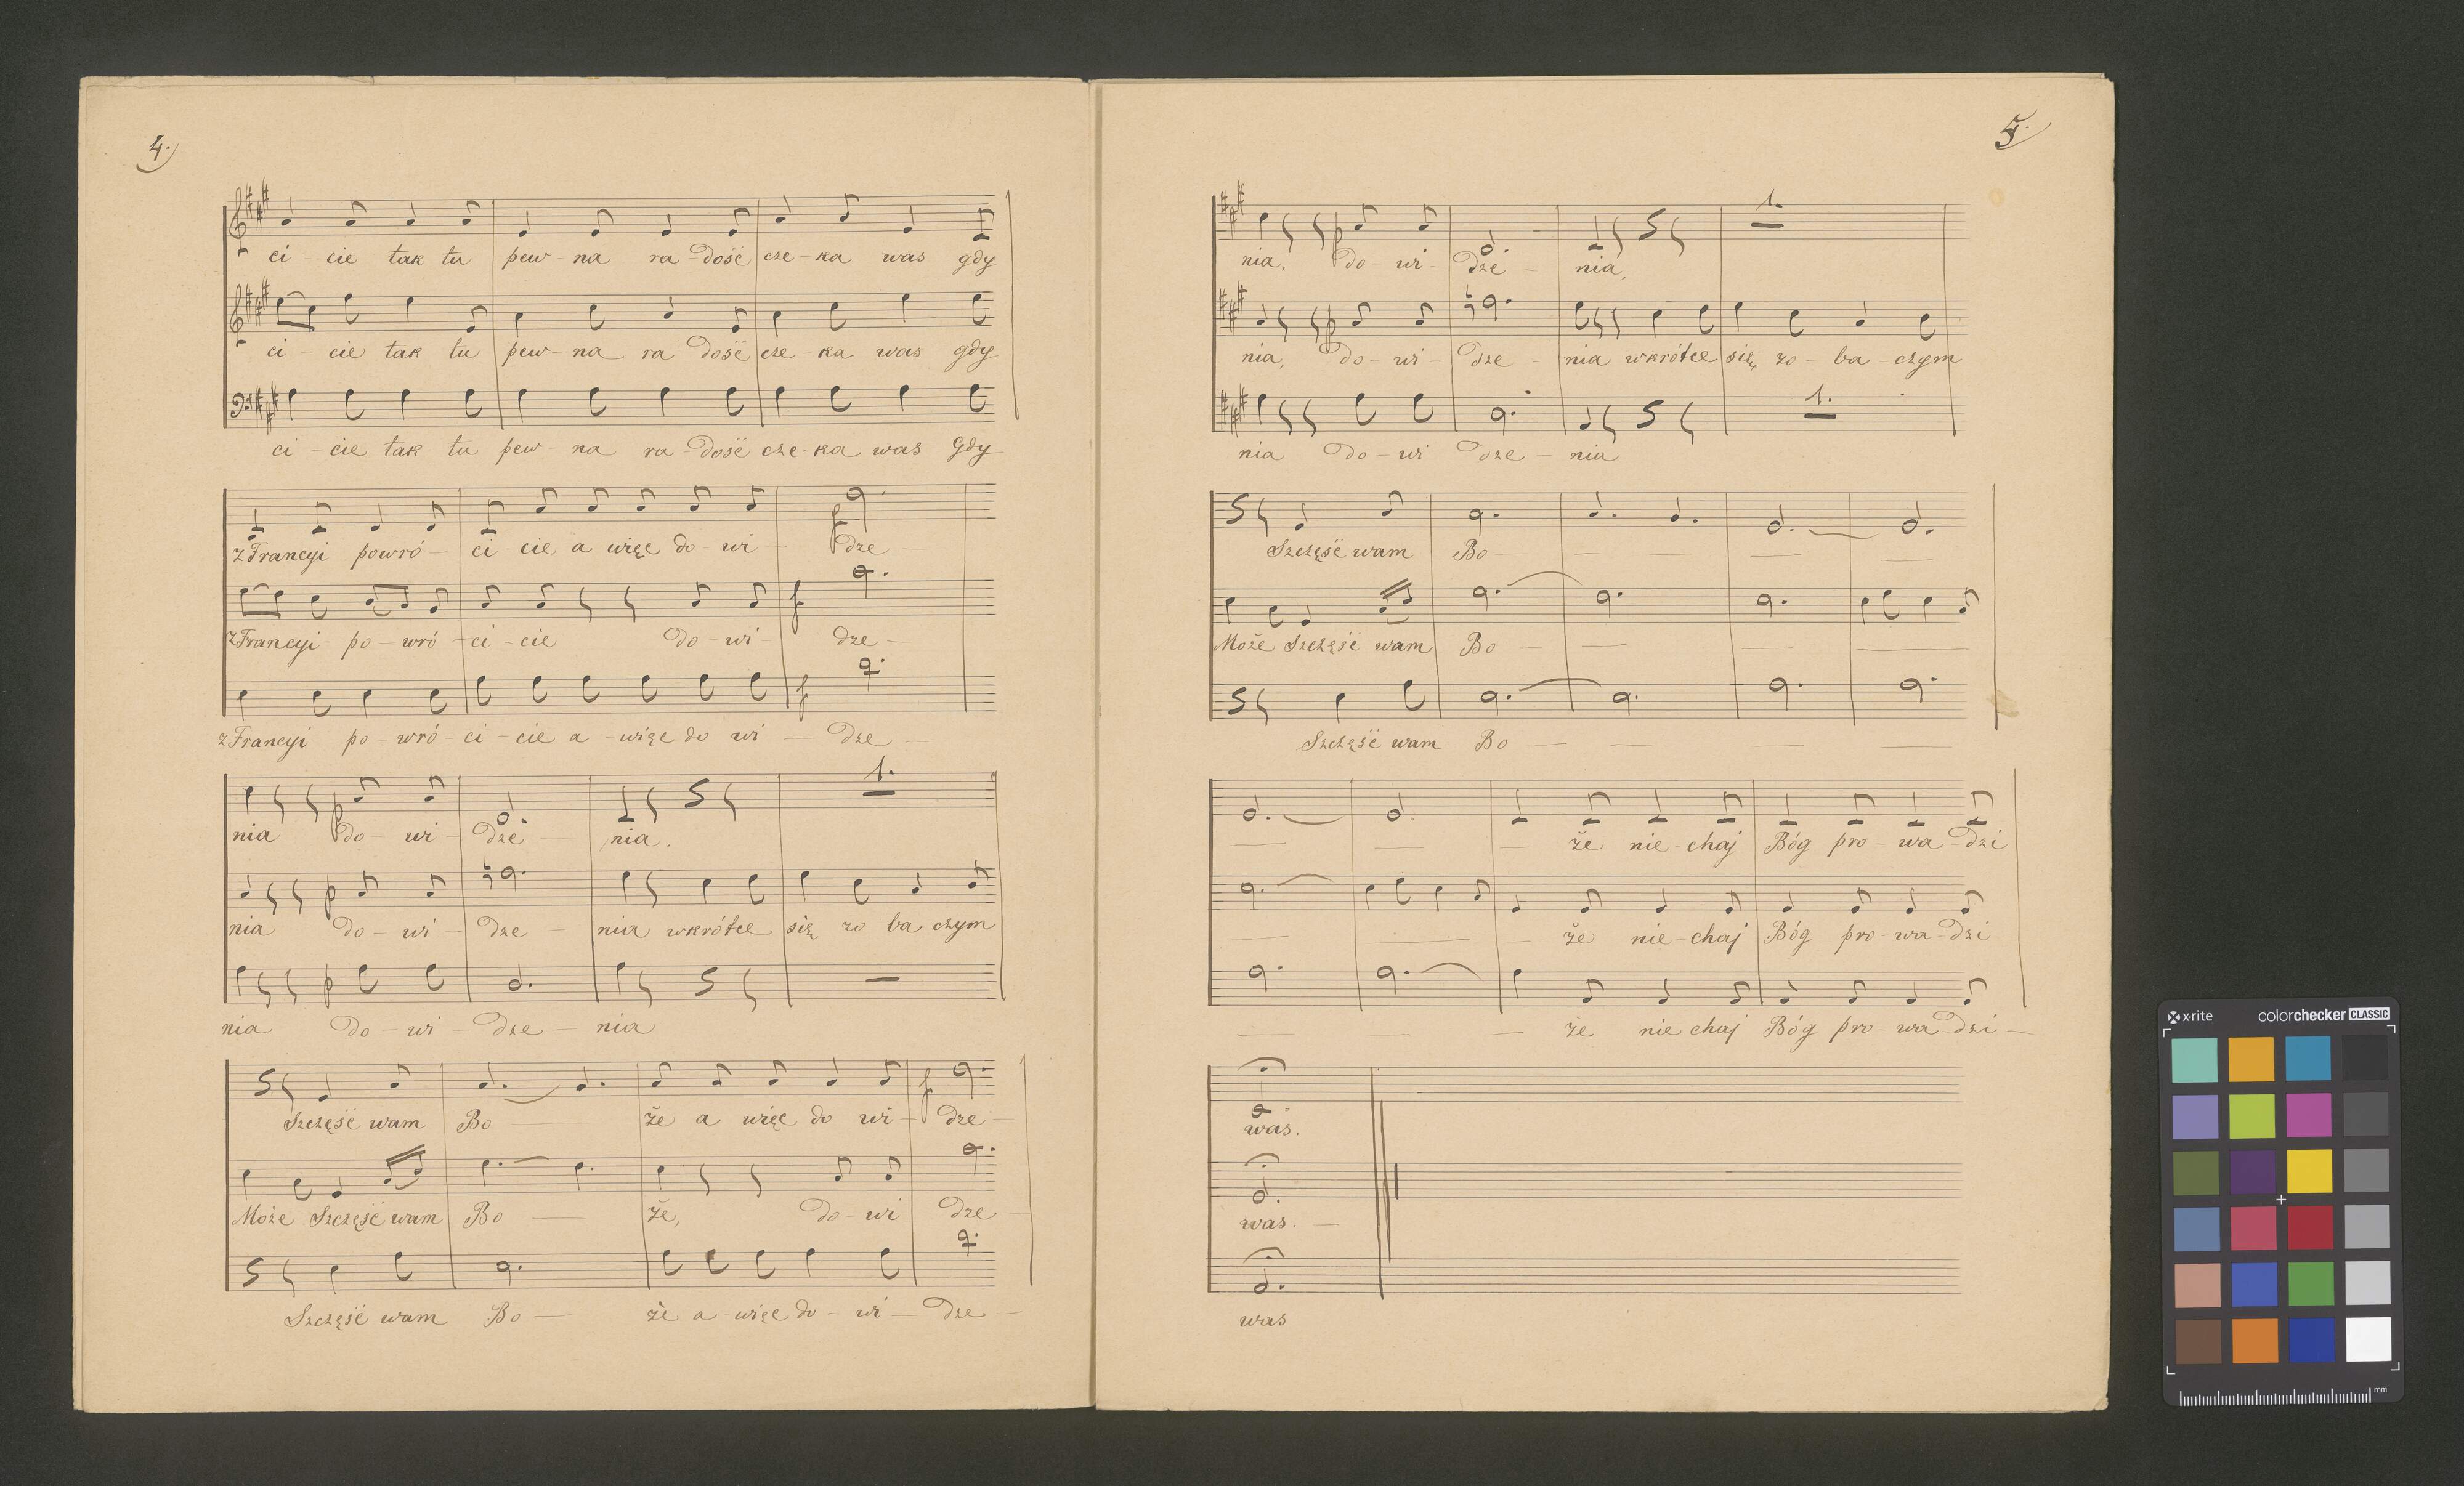 4.
ci - cie tak tu pew - na ra - dość cze - ka was gdy
ci - cie tak tu pew - na ra dość cze - ka was gdy
ci - cie tak tu pew - na ra dość cze - ka was Gdy
z Francyi powró - ci cie a więc do - wi - dze
z Francyi po - wró - ci - cie do - wi - dze -
z Francyi po - wró - ci - cie a - więc do wi - dze -
1.
nia do - wi - dze - nia.
nia do - wi - dze - nia wkrótce się zo ba czym
nia do - wi - dze - nia
Szczęść wam Bo - że a więc do wi - dze -
Może Szczęść wam Bo - że, do - wi dze -
Szczęść wam Bo - że a - więc do - wi - dze -
5.
1.
nia, do - wi - dze - nia,
nia, do - wi - dze - nia wkrótce się zo - ba - czym
1.
nia do - wi dze - nia
Szczęść wam Bo -
Może Szczęść wam Bo -
Szczęść wam Bo -
że nie - chaj Bóg pro - wa - dzi
że nie - chaj Bóg pro - wa - dzi
że nie chaj Bóg pro - wa - dzi -
was.
was. -
was
x-rite colorchecker CLASSIC
mm